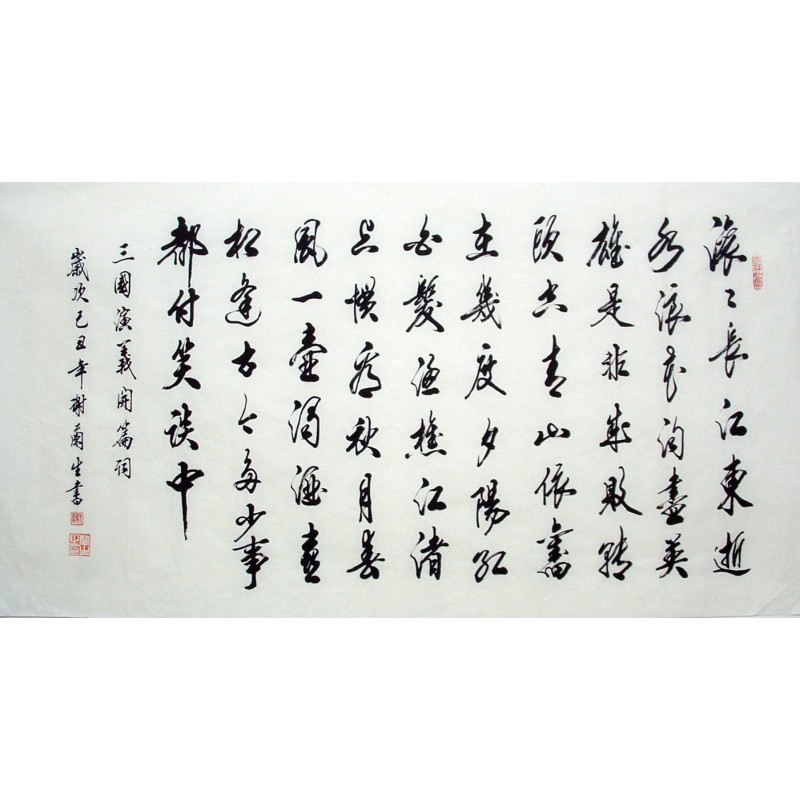 滚々長江東逝
水浪花淘盡英
雄是非成敗轉
頭空青山依舊
在幾度夕陽紅
白髮漁樵江渚
上慣看秋月春
風一壺濁酒喜
相逢古今多少事
都付笑談中
三國演義開篇詞
歲次己丑年謝蘭生書